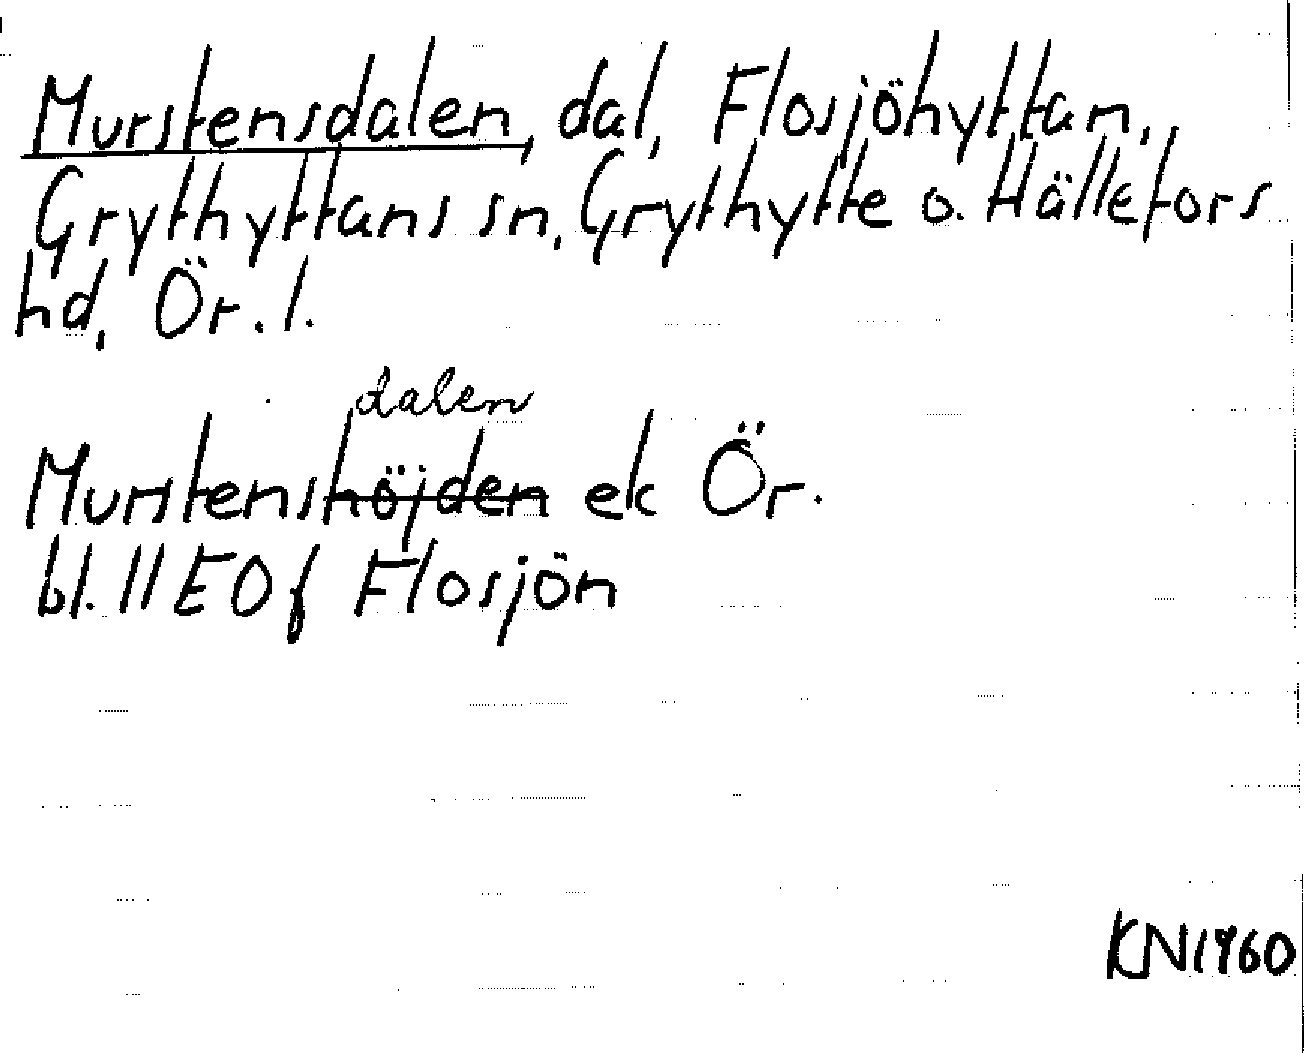 Murstensdalen, dal, Flosjöhyttan,
Grythyttans sn, Grythytte o. Hällefors
hd, Ör. l.
dalen
Murstenshöjden ek Ör.
bl. 11 EOf Flosjön
KN1960